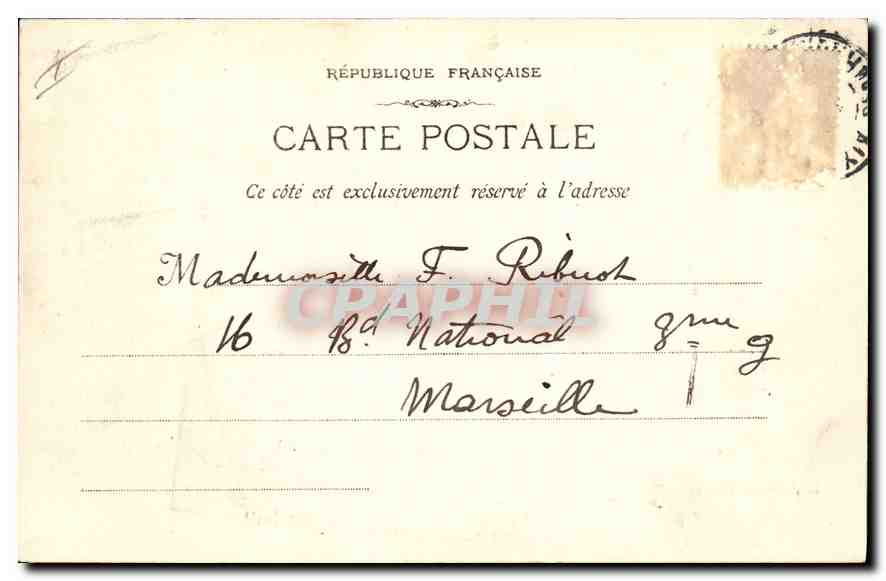 RÉPUBLIQUE FRANÇAISE
CARTE POSTALE
Ce côté est exclusivement réservé à l'adresse
Mademoiselle F.
CPAPHIL
16 Bd National 3me g
Marseille